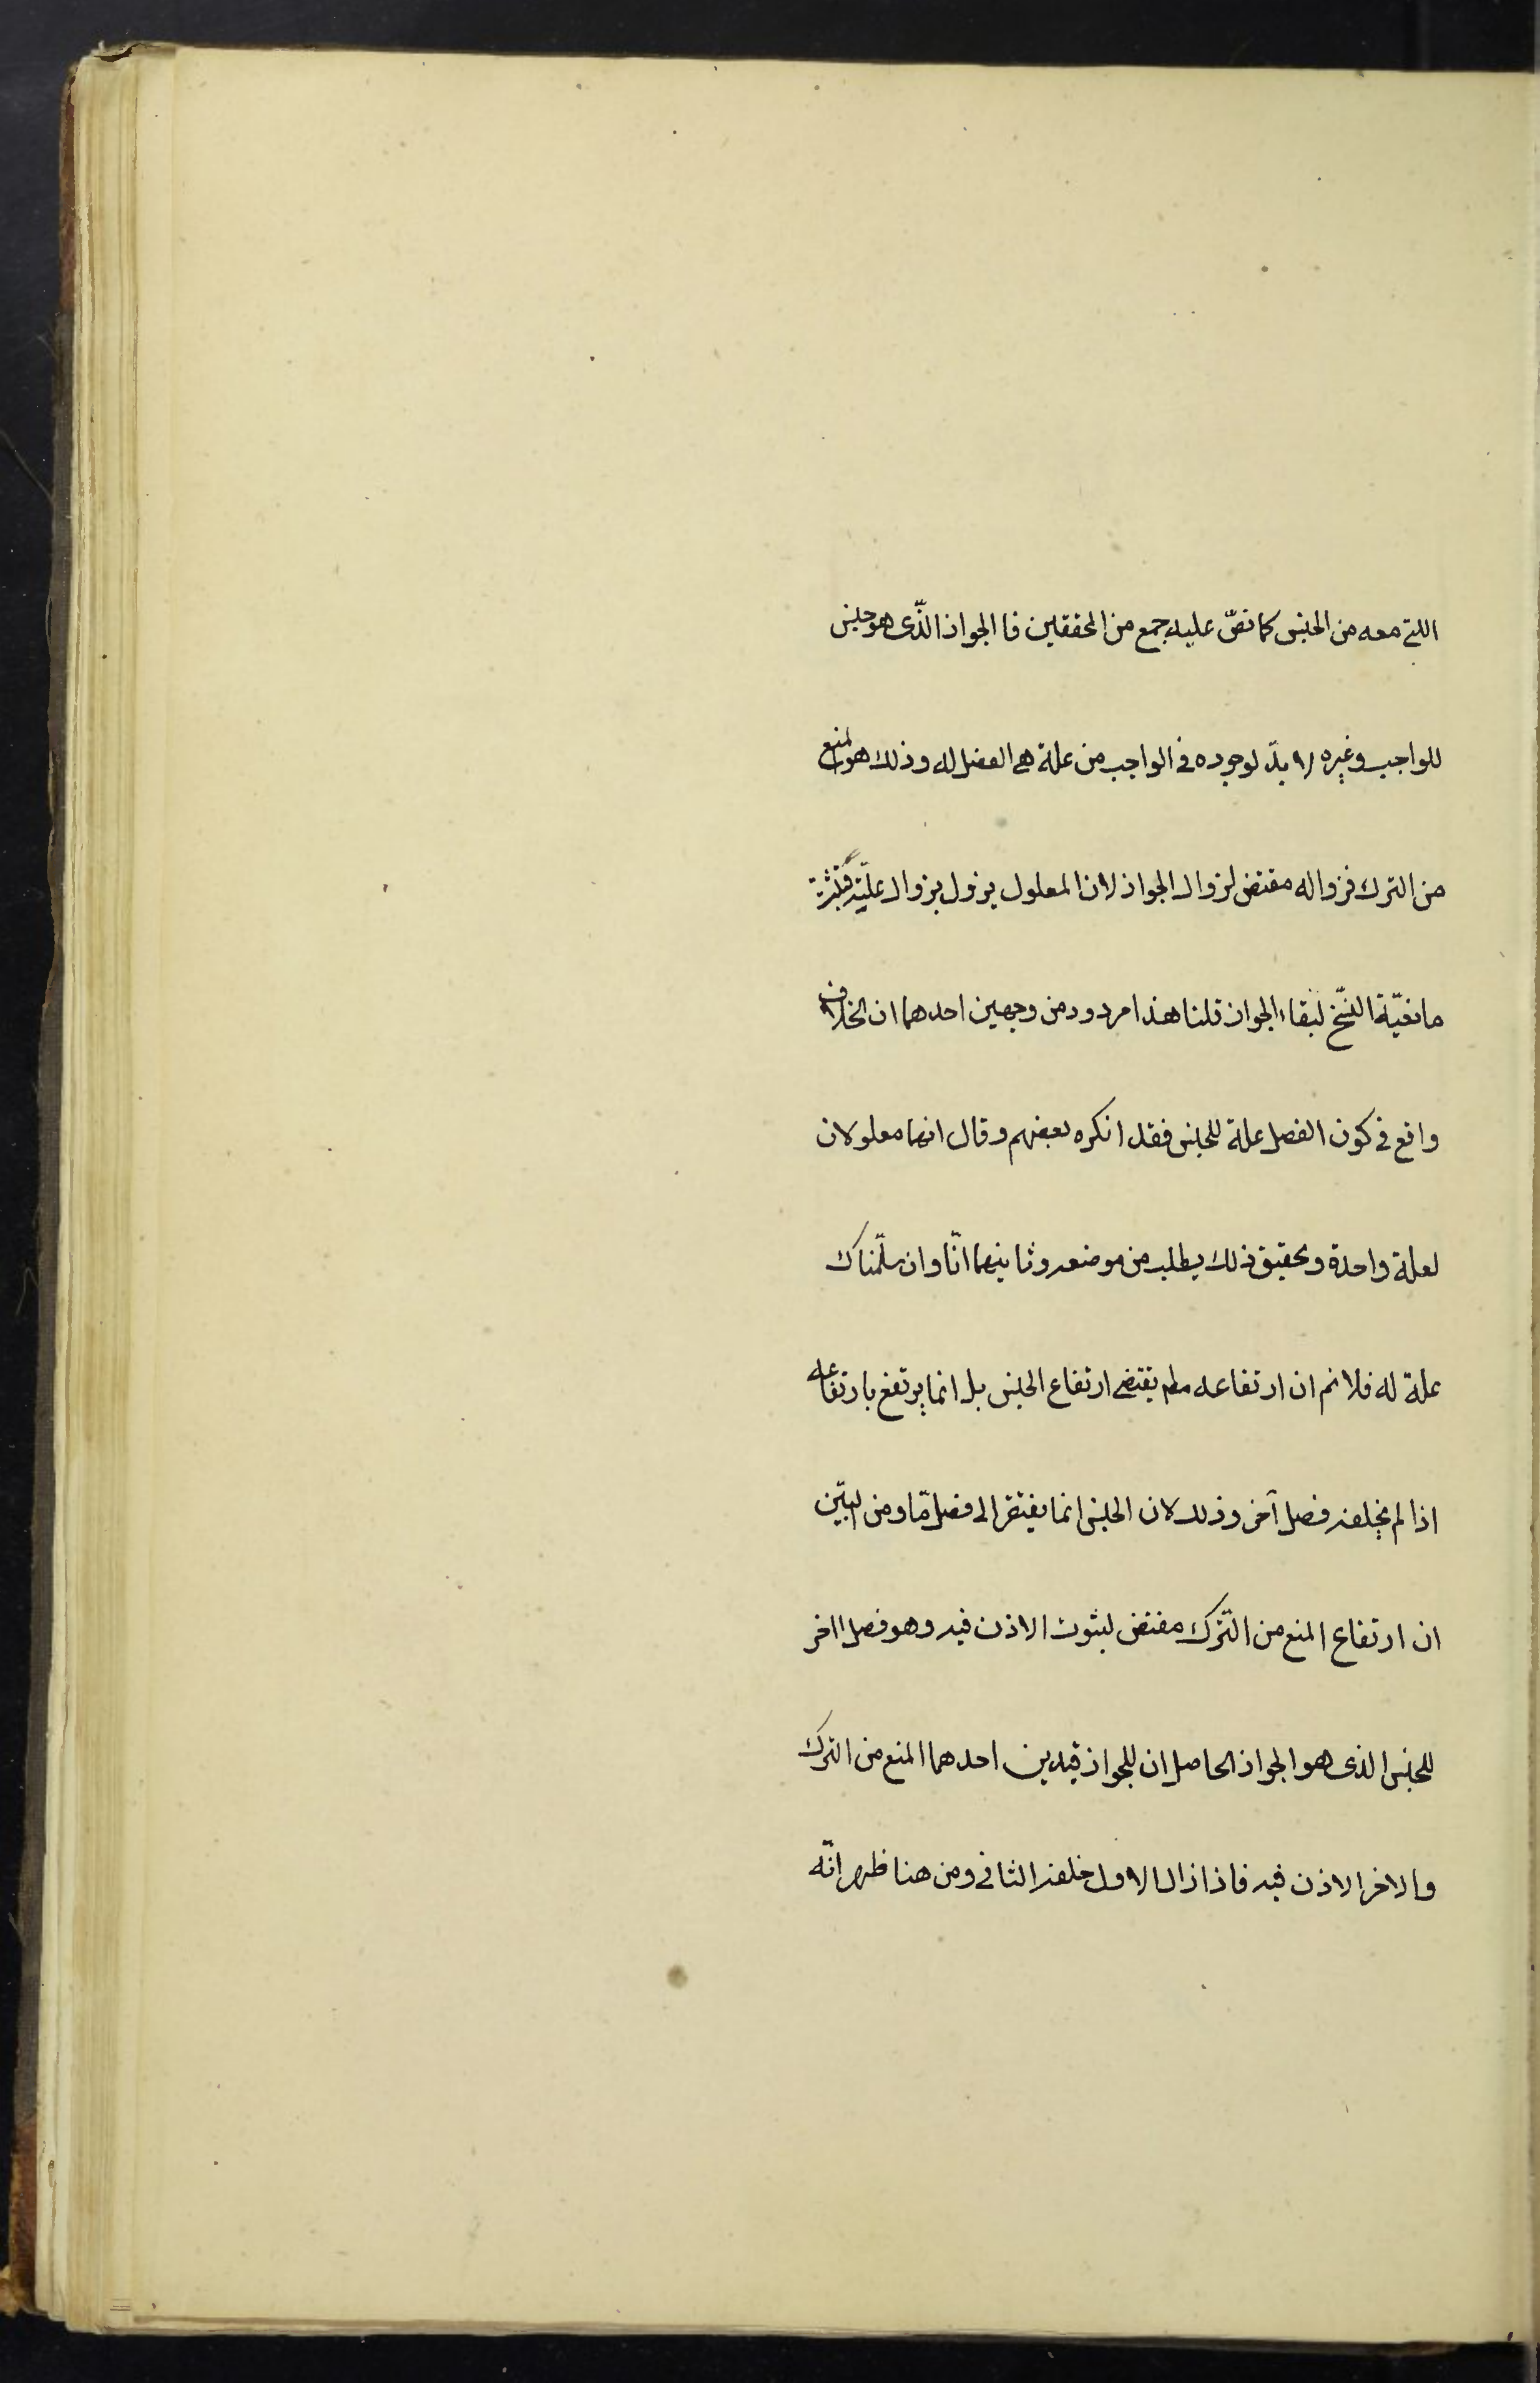 اللتے معه من الجنس كما نصّ عليه جمع من المحققين فا الجواز الذّى هو جنس
للواجب وغيره لا بدّ لوجوده فى الواجب من علة هى الفصل له وذلك هو المنع
من الترك فزواله مقتض لزوال الجواز لان المعلول يزول بزوال علّته فثبت
مانعيّة النسّخ لبقاء الجواز قلنا هذا مردود من وجهين احدهما ان الخلاف
واقع فى كون الفصل علة للجنس فقد انكره بعضهم وقال انهما معلولان
لعلة واحدة وتحقيق ذلك يطلب من موضعه وثانيهما انّا وان سلّمنا ك
علة له فلا نم ان ارتفاعه مطم يقتضى ارتفاع الجنس بل انما يرتفع بارتفاعه
اذا لم يخلفه فصل آخر وذلك لان الجنس انما يفتقر الى فصل مّا ومن البيّن
ان ارتفاع المنع من التّرك مقتض لثبوت الاذن فيه وهو فصل اخر
للجنس الذى هو الجواز الحاصل ان للجواز قيدين احدهما المنع من الترك
والاخر الاذن فيه فاذا زال الاول خلفه الثانى ومن هنا ظهر انّه